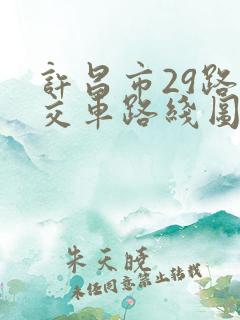 許昌市29路
交車路綫圖
朱天曉
未經同意禁止转载